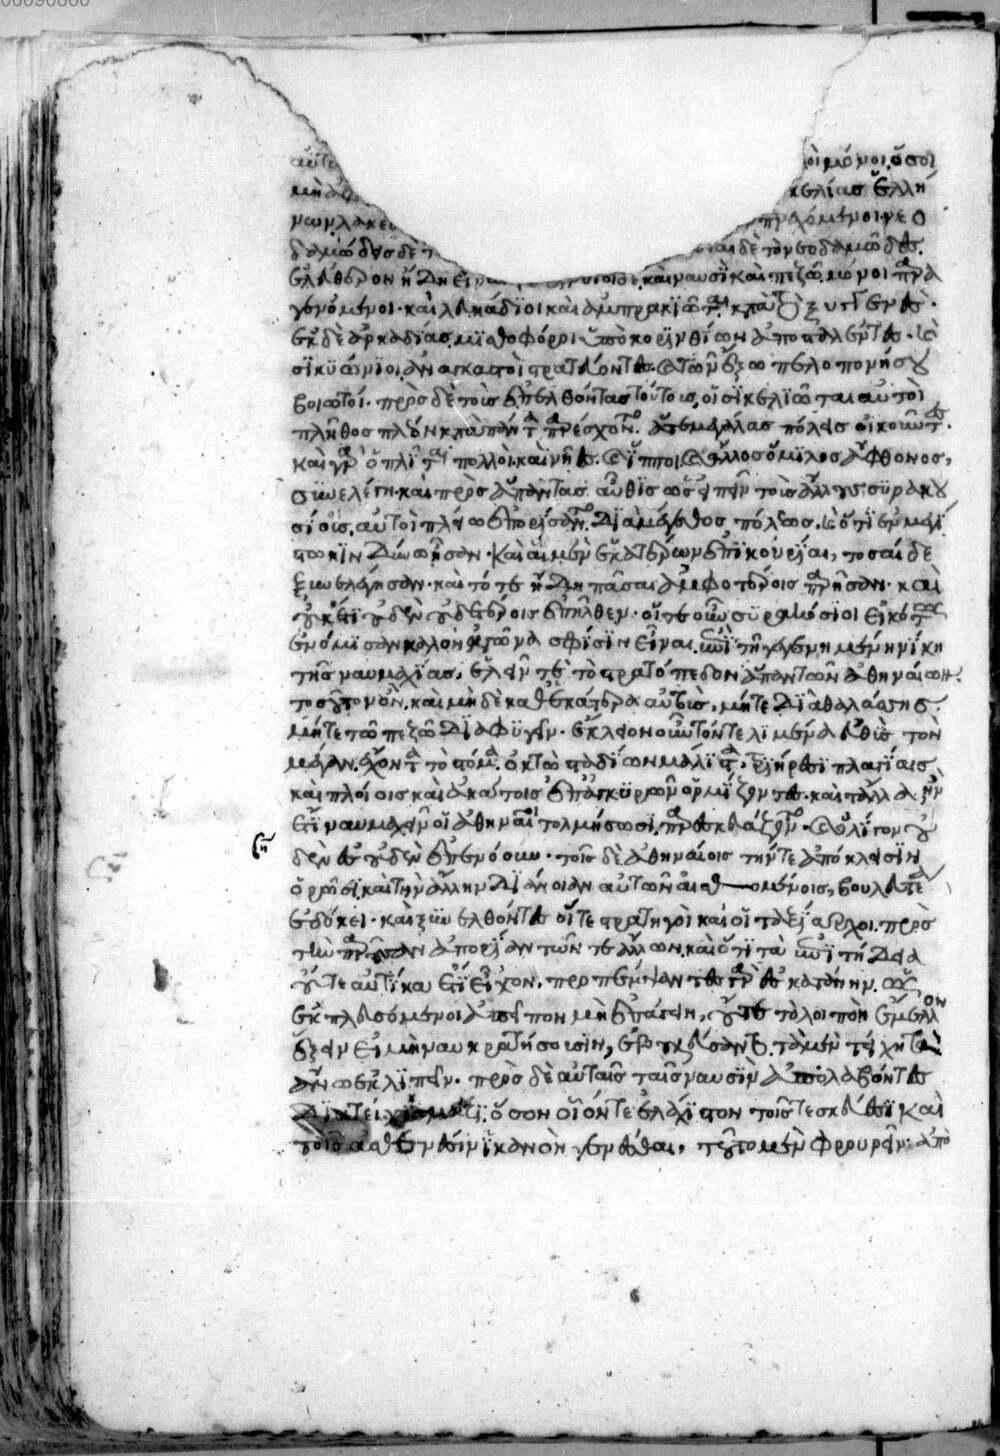 αὐτο οὶ μόνοι ὅσοι
μὴ ἀφ κελίας ἑλλή
νων λακε παρεχόμενοι νεο
δαμώδεις δὲ τ ναι δὲ τὸ νεοδαμῶδες
ἐλεύθερον ἤδη εἶναι νθιοι δὲ καὶ ναυσὶ καὶ πεζῶ μόνοι παρα
γενόμενοι· καὶ λευκάδιοι καὶ ἀμπρακιῶται κατὰ τὸ ξυγγενὲς·
ἐκ δὲ ἀρκαδίας μισθοφόροι ὑπὸ κορινθίων ἀποσταλέντες· καὶ
σικυώνιοι ἀναγκαστοὶ στρατεύοντες· καὶ τῶν ἔξω πελοπονήσου
βοιωτοί· πρὸς δὲ τοὺς ἐπελθόντας τούτους, οἱ σικελιῶται αὐτοὶ
πλῆθος πλέον κατὰ πάντα παρέσχοντο· ἅτε μεγάλας πόλεις οἰκοῦντες·
καὶ γὰρ ὁπλῖται πολλοὶ καὶ νῆες· καὶ ἵπποι καὶ ἄλλος ὅμιλος ἄφθονος,
συνελέγη· καὶ πρὸς ἅπαντας αὖθις ὡς εἰπεῖν τοὺς ἄλλους συρακού
σιοι αὐτοὶ πλείω ἐπορίσαντο διὰ μέγεθος πόλεως· καὶ ὅτι ἐν μεγί
στω κινδύνω ἦσαν· καὶ αἱ μὲν ἑκατέρων ἐπικουρίαι, τοσαίδε
ξυνελέγησαν· καὶ τότε ἤδη πᾶσαι ἀμφοτέροις παρῆσαν· καὶ
οὐκέτι οὐδὲν οὐδετέροις ἐπῆλθεν· οἵ τε οὖν συρακόσιοι εἰκότως
ἐνόμισαν καλὸν ἀγῶνα σφίσιν εἶναι ἐπὶ τῆ γεγενημένη νίκη
τῆς ναυμαχίας, ἑλεῖν τὲ τὸ στρατόπεδον ἅπαν τῶν ἀθηναίων
τοσοῦτον ὂν, καὶ μηδὲ καθ' ἑκάτερα αὐτοὺς, μήτε διὰ θαλάσσης
μήτε τῶ πεζῶ διαφυγεῖν· ἔκλειον οὖν τόν τε λιμένα εὐθὺς τὸν
μέγαν ἔχοντα τὸ στόμα ὀκτὼ σταδίων μάλιστα, τριήρεσι πλαγίαις
καὶ πλοίοις καὶ ἀκάτοις ἐπ' ἀγκυρῶν ὁρμίζοντες· καὶ τἆλλα ἢν
ἔτι ναυμαχεῖν οἱ ἀθηναῖοι τολμήσωσι παρεσκευάζοντο· καὶ ὀλίγον οὐ
δὲν ἐς οὐδὲν ἐπενόουν· τοῖς δὲ ἀθηναίοις τήν τε ἀπόκλεισιν
ὁρῶσι καὶ τὴν ἄλλην διάνοιαν αὐτῶν αἰσθομένοις, βουλευτέα
ἐδόκει· καὶ ξυνελθόντες οἵ τε στρατηγοὶ καὶ οἱ ταξίαρχοι πρὸς
τὴν παροῦσαν ἀπορίαν τῶν τε ἄλλων καὶ ὅτι τὰ ἐπιτήδεια
οὔτε αὐτίκα ἔτι εἶχον· προπέμψαντες γὰρ ἐς κατάνην ὡς
ἐκπλευσόμενοι ἀπεῖπον μὴ ἐπάγειν, οὔτε τὸ λοιπὸν ἔμελλον
ἕξειν εἰ μὴ ναυκρατήσουσιν, ἐβουλεύσαντο τὰ μὲν τείχη τὰ
ἄνω ἐκλιπεῖν· πρὸς δὲ αὐταῖς ταῖς ναυσὶν ἀπολαβόντες
διατειχίσματι ὅσον οἷόν τε ἐλάχιστον τοῖς τε σκεύεσι καὶ
τοῖς ἀσθενέσιν ἱκανὸν γενέσθαι, τοῦτο μὲν φρουρεῖν· ἀπὸ